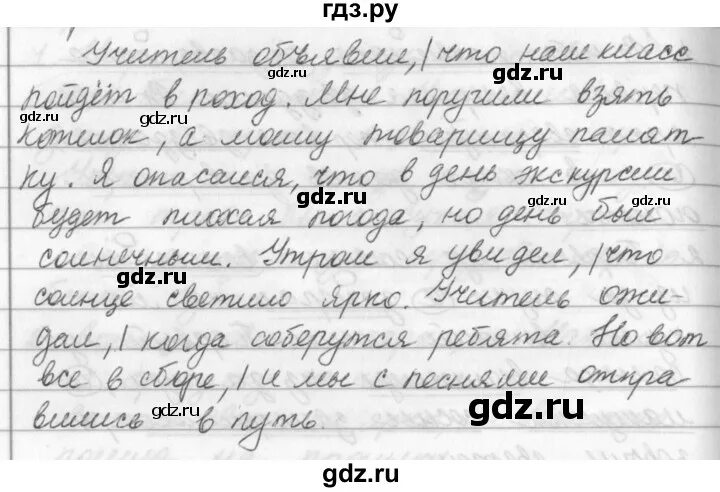 гдз.ру
Учитель объявил,| что наш класс
пойдёт в поход. Мне поручили взять
котелок, а моему товарищу палат-
ку. Я опасался, что в день экскурсии
будет плохая погода, но день был
солнечным. Утром я увидел,| что
солнце светило ярко. Учитель ожи-
дал,| когда соберутся ребята. Но вот
все в сборе,| и мы с песнями отпра
вились в путь.
gdz.ru
gdz.ru
gdz.ru
gdz.ru
gdz.ru
gdz.ru
gdz.ru
gdz.ru
gdz.ru
gdz.ru
gdz.ru
gdz.ru